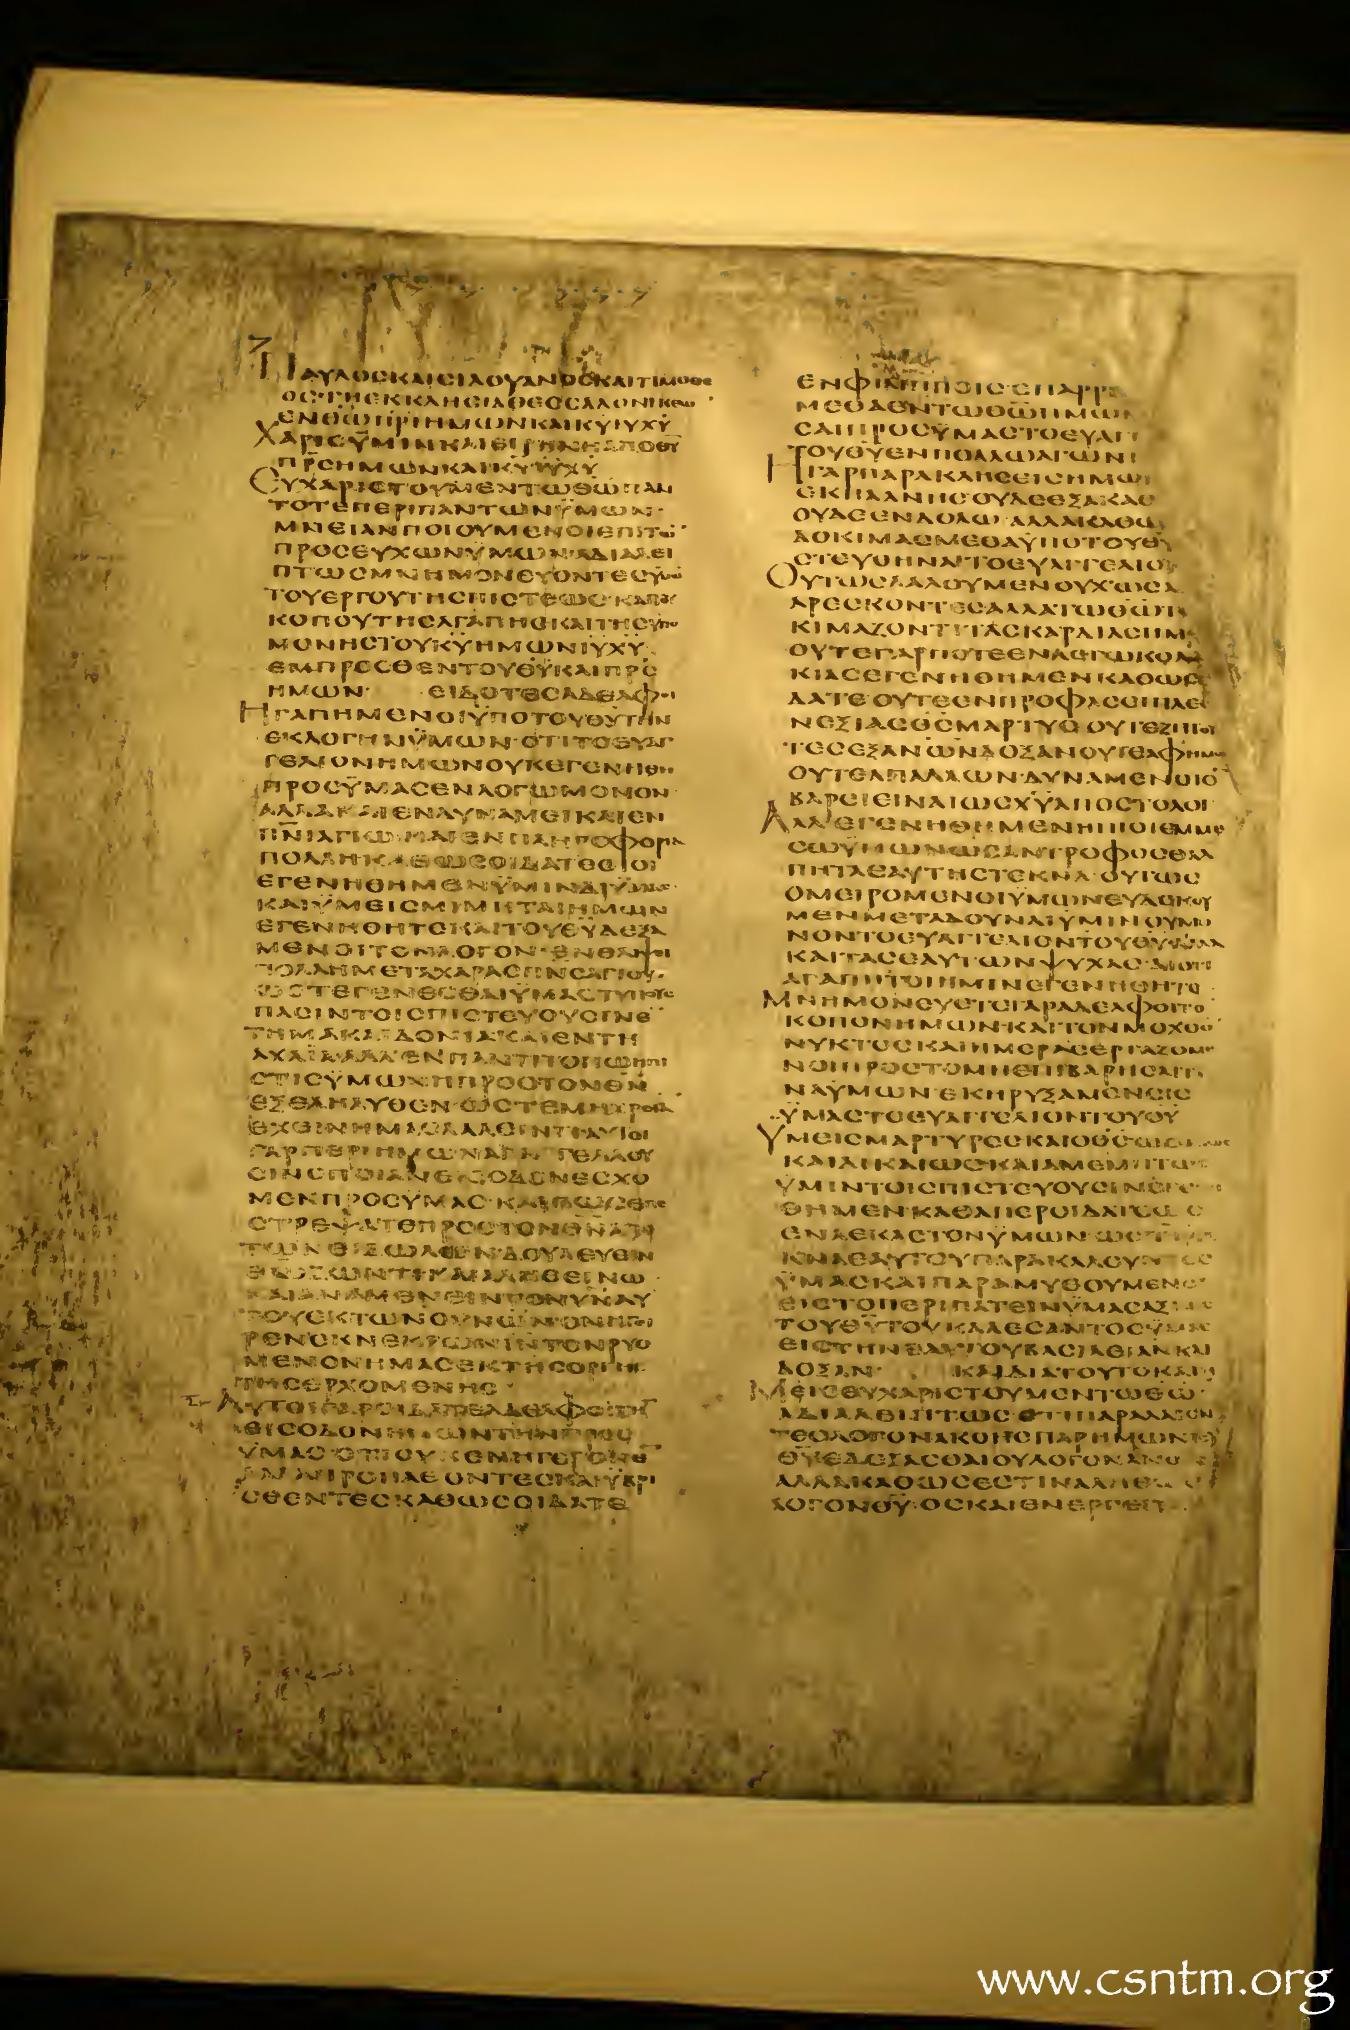 ΠΑΥΛΟΣΚΑΙΣΙΛΟΥΑΝΟΣΚΑΙΤΙΜΟΘΕ
ΟΣΤΗΕΚΚΛΗΣΙΑΘΕΣΣΑΛΟΝΙΚΕΩ
ΕΝΘΩΠΡΙΗΜΩΝΚΑΙΚΥΙΥΧΥ
ΧΑΡΙΣΫΜΙΝΚΑΙΕΙΡΗΝΗΑΠΟΘΥ
ΠΡΣΗΜΩΝΚΑΙΚΥΙΥΧΥ
ΕΥΧΑΡΙΣΤΟΥΜΕΝΤΩΘΩΠΑΝ
ΤΟΤΕΠΕΡΙΠΑΝΤΩΝΫΜΩΝ·
ΜΝΕΙΑΝΠΟΙΟΥΜΕΝΟΙΕΠΙΤΩ
ΠΡΟΣΕΥΧΩΝΫΜΩΝΑΔΙΑΛΕΙ
ΠΤΩΣΜΝΗΜΟΝΕΥΟΝΤΕΣΫΜΩ
ΤΟΥΕΡΓΟΥΤΗΣΠΙΣΤΕΩΣ·ΚΑΙΤΟΥ
ΚΟΠΟΥΤΗΣΑΓΑΠΗΣΚΑΙΤΗΣΫΠΟ
ΜΟΝΗΣΤΟΥΚΥΗΜΩΝΙΥΧΥ
ΕΜΠΡΟΣΘΕΝΤΟΥΘΥΚΑΙΠΡΣ
ΗΜΩΝ· ΕΙΔΟΤΕΣΑΔΕΛΦΟΙ
ΗΓΑΠΗΜΕΝΟΙΫΠΟΤΟΥΘΥΤΗΝ
ΕΚΛΟΓΗΝΫΜΩΝ·ΟΤΙΤΟΕΥΑΓ
ΓΕΛΙΟΝΗΜΩΝΟΥΚΕΓΕΝΗΘΗ
ΠΡΟΣΫΜΑΣΕΝΛΟΓΩΜΟΝΟΝ
ΑΛΛΑΚΑΙΕΝΔΥΝΑΜΕΙΚΑΙΕΝ
ΠΝΙΑΓΙΩ·ΚΑΙΕΝΠΛΗΡΟΦΟΡΙΑ
ΠΟΛΛΗΚΑΘΩΣΟΙΔΑΤΕΟΙΟΙ
ΕΓΕΝΗΘΗΜΕΝΫΜΙΝΔΙΫΜΑΣ·
ΚΑΙΫΜΕΙΣΜΙΜΗΤΑΙΗΜΩΝ
ΕΓΕΝΗΘΗΤΕΚΑΙΤΟΥΚΥΔΕΞΑ
ΜΕΝΟΙΤΟΝΛΟΓΟΝ·ΕΝΘΛΙΨΕΙ
ΠΟΛΛΗΜΕΤΑΧΑΡΑΣΠΝΣΑΓΙΟΥ·
ΩΣΤΕΓΕΝΕΣΘΑΙΫΜΑΣΤΥΠΟΥΣ
ΠΑΣΙΝΤΟΙΣΠΙΣΤΕΥΟΥΣΙΝΕ
ΤΗΜΑΚΑΙΔΟΝΙΑΚΑΙΕΝΤΗ
ΑΧΑΪΑΑΛΛΕΝΠΑΝΤΙΤΟΠΩΗΠΙ
ΣΤΙΣΫΜΩΝΗΠΡΟΣΤΟΝΘΝ
ΕΞΕΛΗΛΥΘΕΝ·ΩΣΤΕΜΗΧΡΕΙΑ
ΕΧΕΙΝΗΜΑΣΛΑΛΕΙΝΤΙΑΥΤΟΙ
ΓΑΡΠΕΡΙΗΜΩΝΑΠΑΓΓΕΛΛΟΥ
ΣΙΝΟΠΟΙΑΝΕΙΣΟΔΟΝΕΣΧΟ
ΜΕΝΠΡΟΣΫΜΑΣ·ΚΑΙΠΩΣΕΠΕ
ΣΤΡΕΨΑΤΕΠΡΟΣΤΟΝΘΝΑΠΟ
ΤΩΝΕΙΔΩΛΩΝΔΟΥΛΕΥΕΙΝ
ΘΩΖΩΝΤΙΚΑΙΑΛΗΘΕΙΝΩ
ΚΑΙΑΝΑΜΕΝΕΙΝΤΟΝΥΝΑΥ
ΤΟΥΕΚΤΩΝΟΥΝΩΝ·ΟΝΗΓΕΙ
ΡΕΝΕΚΝΕΚΡΩΝΙΝΤΟΝΡΥΟ
ΜΕΝΟΝΗΜΑΣΕΚΤΗΣΟΡΓΗΣ
ΤΗΣΕΡΧΟΜΕΝΗΣ
ΑΥΤΟΙΓΑΡΟΙΔΑΤΕΑΔΕΛΦΟΙΤΗ
ΕΙΣΟΔΟΝΗΜΩΝΤΗΝΠΡΟΣ
ΫΜΑΣ·ΟΤΙΟΥΚΕΝΗΓΕΓΟΝΕ
ΑΛΛΑΠΡΟΠΑΘΟΝΤΕΣΚΑΙΫΒΡΙ
ΣΘΕΝΤΕΣΚΑΘΩΣΟΙΔΑΤΕ
ΕΝΦΙΛΙΠΠΟΙΣΕΠΑΡΡΗ
ΤΟΥΘΥΕΝΠΟΛΛΩΑΓΩΝΙ
ΗΓΑΡΠΑΡΑΚΛΗΣΕΙΣΗΜΩ
ΕΚΠΛΑΝΗΣΟΥΔΕΕΞΑΚΑΘ
ΟΥΔΕΕΝΔΟΛΩ·ΑΛΛΑΚΑΘΩ
ΔΟΚΙΜΑΣΜΕΘΑΫΠΟΤΟΥΘΥ
ΣΤΕΥΘΗΝΑΙΤΟΕΥΑΓΓΕΛΙΟ
ΟΥΤΩΣΛΑΛΟΥΜΕΝΟΥΧΩΣΑ
ΑΡΕΣΚΟΝΤΕΣΑΛΛΑΤΩΘΩ
ΚΙΜΑΖΟΝΤΙΤΑΣΚΑΡΔΙΑΣΗΜ
ΟΥΤΕΓΑΡΠΟΤΕΕΝΛΟΓΩΚΟΛΑ
ΚΙΑΣΕΓΕΝΗΘΗΜΕΝΚΑΘΩΣ
ΔΑΤΕ·ΟΥΤΕΕΝΠΡΟΦΑΣΕΙΠΛΕ
ΝΕΞΙΑΣΘΣΜΑΡΤΥΣ·ΟΥΤΕΖΗΤΟΥ
ΤΕΣΕΞΑΝΩΝΔΟΞΑΝΟΥΤΕΑΦΗΜΩ
ΟΥΤΕΑΠΑΛΛΩΝ·ΔΥΝΑΜΕΝΟΙΕ
ΒΑΡΕΙΕΙΝΑΙΩΣΧΥΑΠΟΣΤΟΛΟΙ
ΑΛΛΕΓΕΝΗΘΗΜΕΝΗΠΙΟΙΕΝΜΕ
ΣΩΫΜΩΝΩΣΑΝΤΡΟΦΟΣΘΑΛ
ΠΗΤΑΕΑΥΤΗΣΤΕΚΝΑ·ΟΥΤΩΣ
ΟΜΕΙΡΟΜΕΝΟΙΫΜΩΝΕΥΔΟΚΟΥ
ΜΕΝΜΕΤΑΔΟΥΝΑΙΫΜΙΝΟΥΜΟ
ΝΟΝΤΟΕΥΑΓΓΕΛΙΟΝΤΟΥΘΥΑΛΛΑ
ΚΑΙΤΑΣΕΑΥΤΩΝΨΥΧΑΣ·ΔΙΟΤΙ
ΑΓΑΠΗΤΟΙΗΜΙΝΕΓΕΝΗΘΗΤΕ
ΜΝΗΜΟΝΕΥΕΤΕΓΑΡΑΔΕΛΦΟΙΤΟ
ΚΟΠΟΝΗΜΩΝ·ΚΑΙΤΟΝΜΟΧΘΟ
ΝΥΚΤΟΣΚΑΙΗΜΕΡΑΣΕΡΓΑΖΟΜΕ
ΝΟΙΠΡΟΣΤΟΜΗΕΠΙΒΑΡΗΣΑΙΤΙ
ΝΑΫΜΩΝ·ΕΚΗΡΥΞΑΜΕΝΕΙΣ
ΫΜΑΣΤΟΕΥΑΓΓΕΛΙΟΝΤΟΥΘΥ
ΥΜΕΙΣΜΑΡΤΥΡΕΣΚΑΙΟΘΣΩΣΟΣΙΩΣ
ΚΑΙΔΙΚΑΙΩΣΚΑΙΑΜΕΜΠΤΩΣ
ΫΜΙΝΤΟΙΣΠΙΣΤΕΥΟΥΣΙΝΕΓΕ
ΘΗΜΕΝ·ΚΑΘΑΠΕΡΟΙΔΑΤΕΩΣ
ΕΝΑΕΚΑΣΤΟΝΫΜΩΝ·ΩΣΠ
ΚΝΑΕΑΥΤΟΥΠΑΡΑΚΑΛΟΥΝΤΕΣ
ΫΜΑΣΚΑΙΠΑΡΑΜΥΘΟΥΜΕΝΟΙ
ΕΙΣΤΟΠΕΡΙΠΑΤΕΙΝΫΜΑΣΑΞΙΩΣ
ΤΟΥΘΥΤΟΥΚΑΛΕΣΑΝΤΟΣΫΜΑΣ
ΕΙΣΤΗΝΕΑΥΤΟΥΒΑΣΙΛΕΙΑΝΚΑΙ
ΔΟΞΑΝ· ΚΑΙΔΙΑΤΟΥΤΟΚΑΙΗ
ΜΕΙΣΕΥΧΑΡΙΣΤΟΥΜΕΝΤΩΘΩ
ΑΔΙΑΛΕΙΠΤΩΣ·ΟΤΙΠΑΡΑΛΑΒΟΝ
ΤΕΣΛΟΓΟΝΑΚΟΗΣΠΑΡΗΜΩΝΤΟΥ
ΘΥΕΔΕΞΑΣΘΑΙΟΥΛΟΓΟΝΑΝΩ
ΑΛΛΑΚΑΘΩΣΕΣΤΙΝΑΛΗΘ
ΛΟΓΟΝΘΥ·ΟΣΚΑΙΕΝΕΡΓΕΙΤ
www.csntm.org